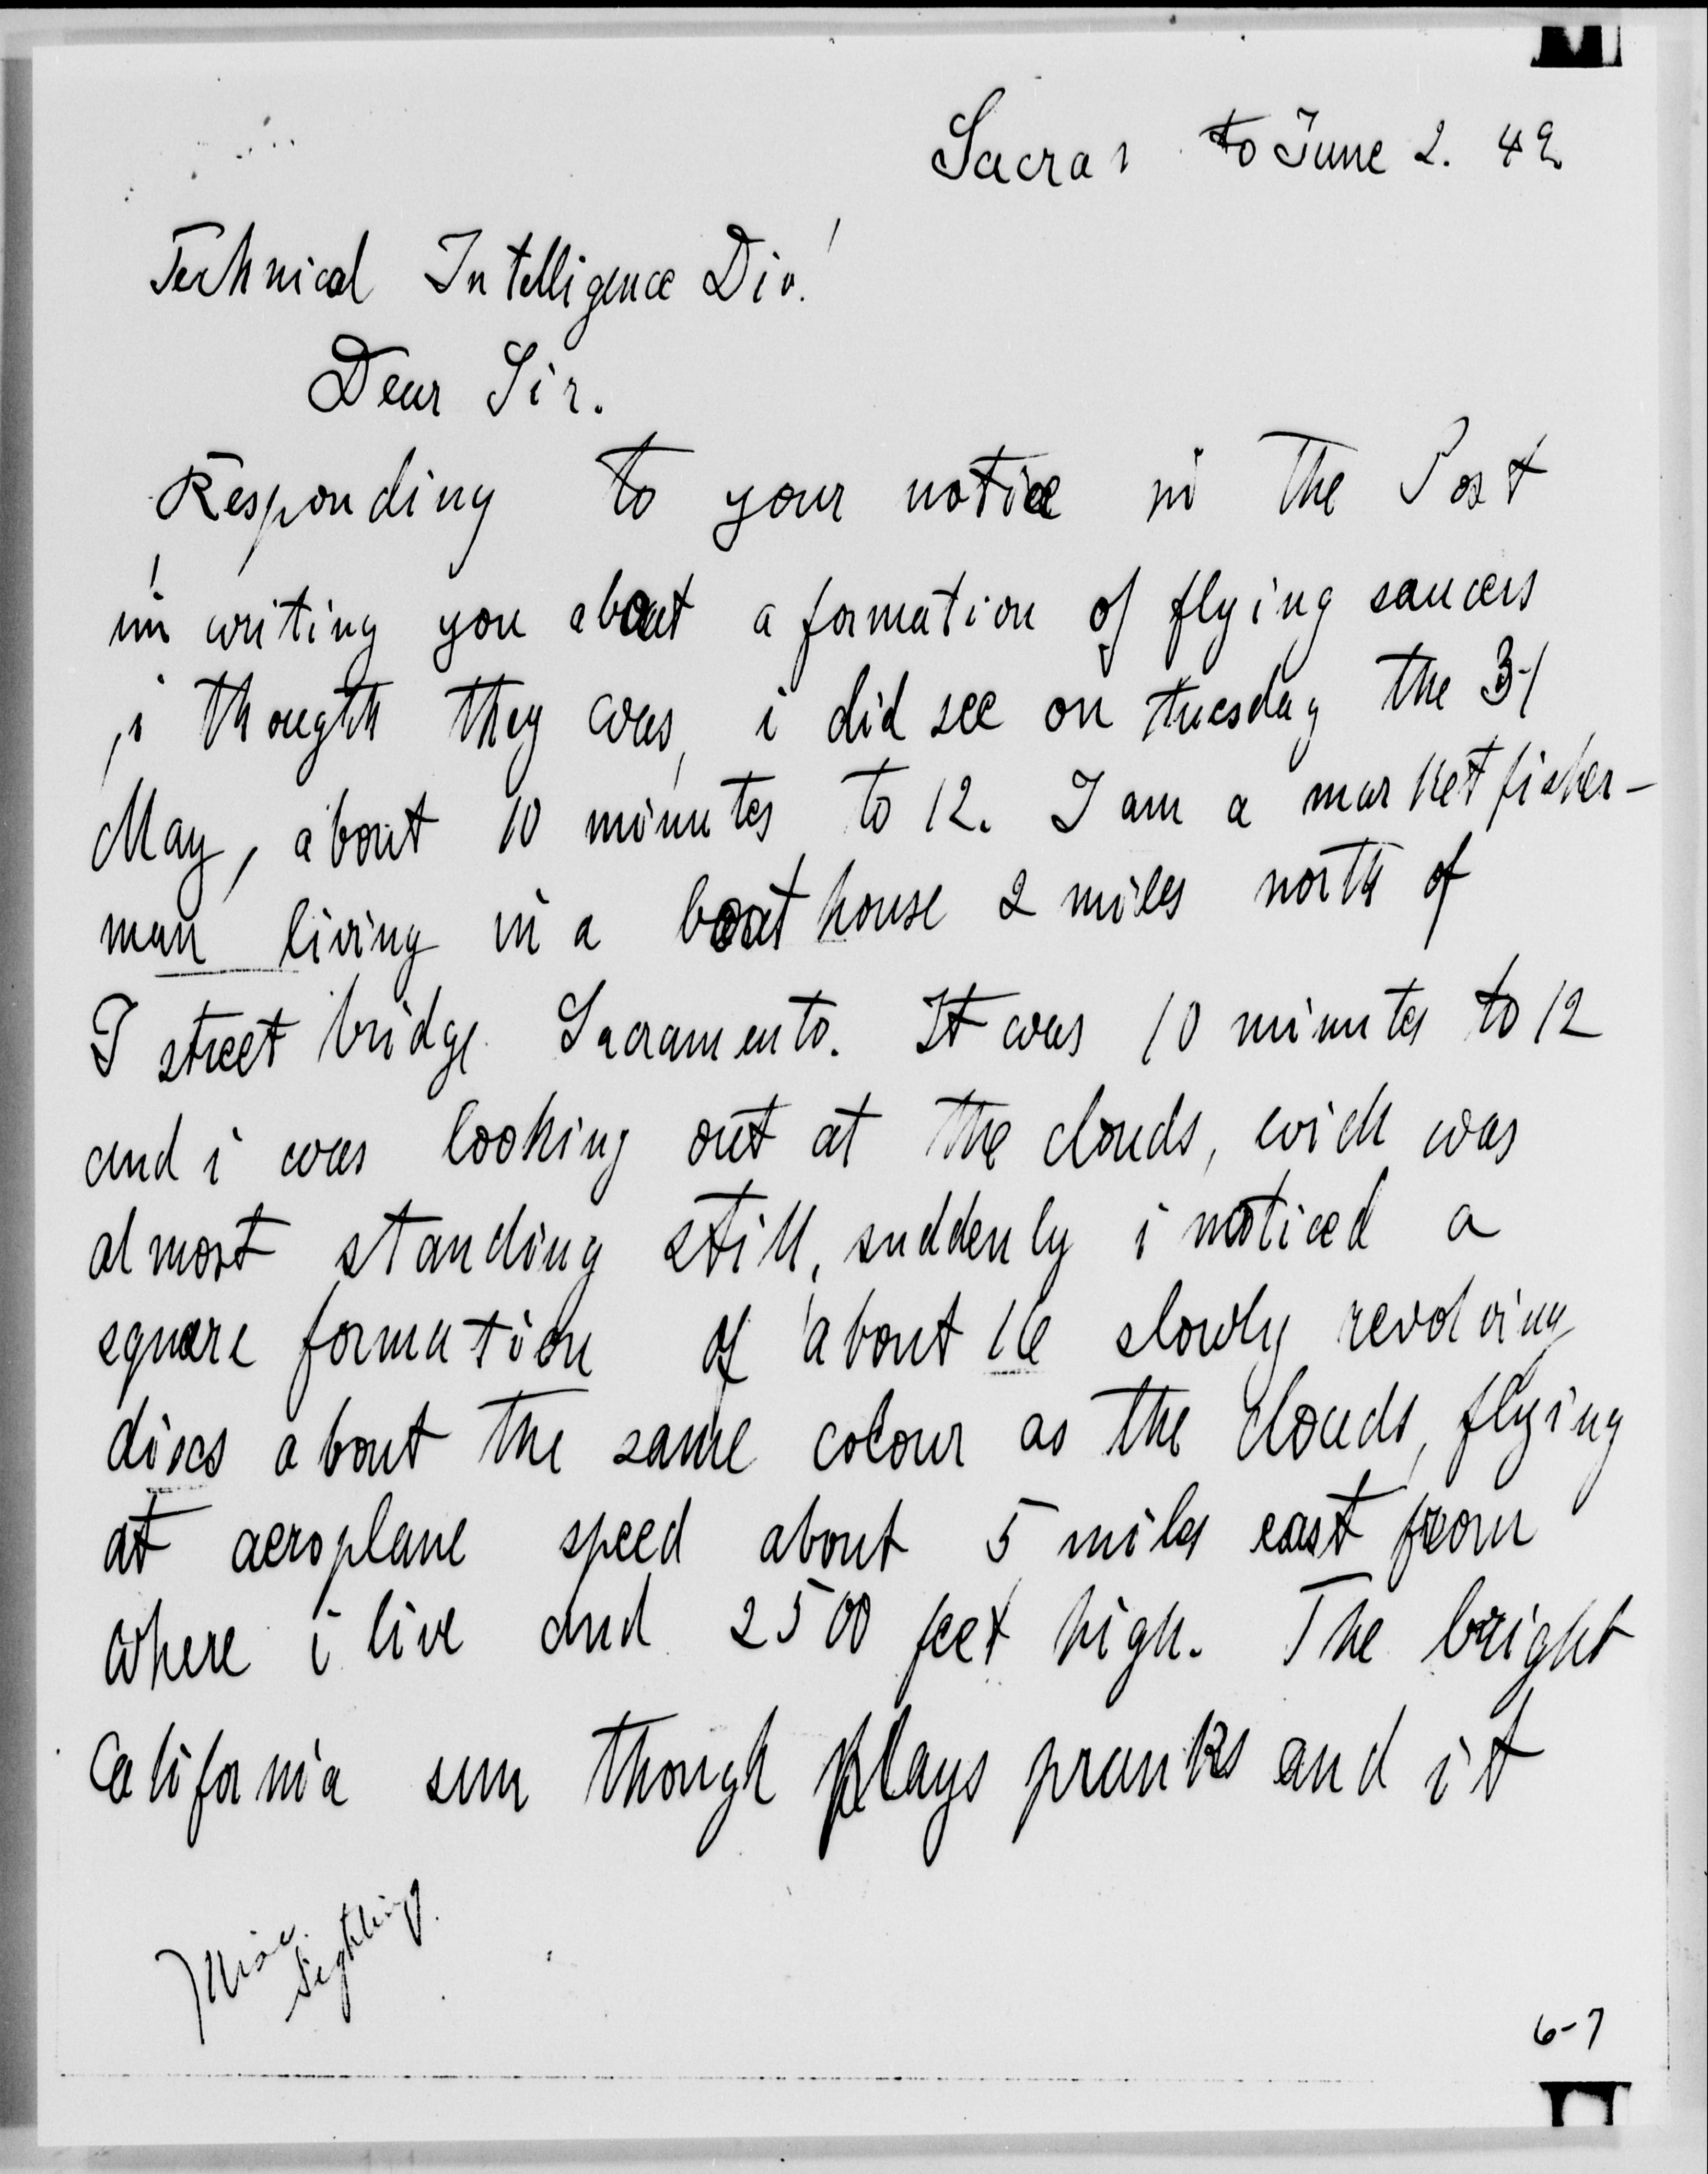 Sacra to June 2. 49
Technical Intelligence Div!
Dear Sir.
Responding to your notice in the Post
im writing you about a formation of flying saucers
i thougth they was, i did see on tuesday the 31
May, about 10 minutes to 12. I am a market fisher-
man living in a boat house 2 miles north of
I street bridge Sacramento. It was 10 minutes to 12
and i was looking out at the clouds, wich was
almost standing still, suddenly i noticed a
square formation of about 16 slowly revolving
discs about the same colour as the clouds, flying
at aeroplane speed about 5 miles east from
where i live and 2500 feet high. The bright
California sun though plays pranks and it
Misc. Sighting.
6-7